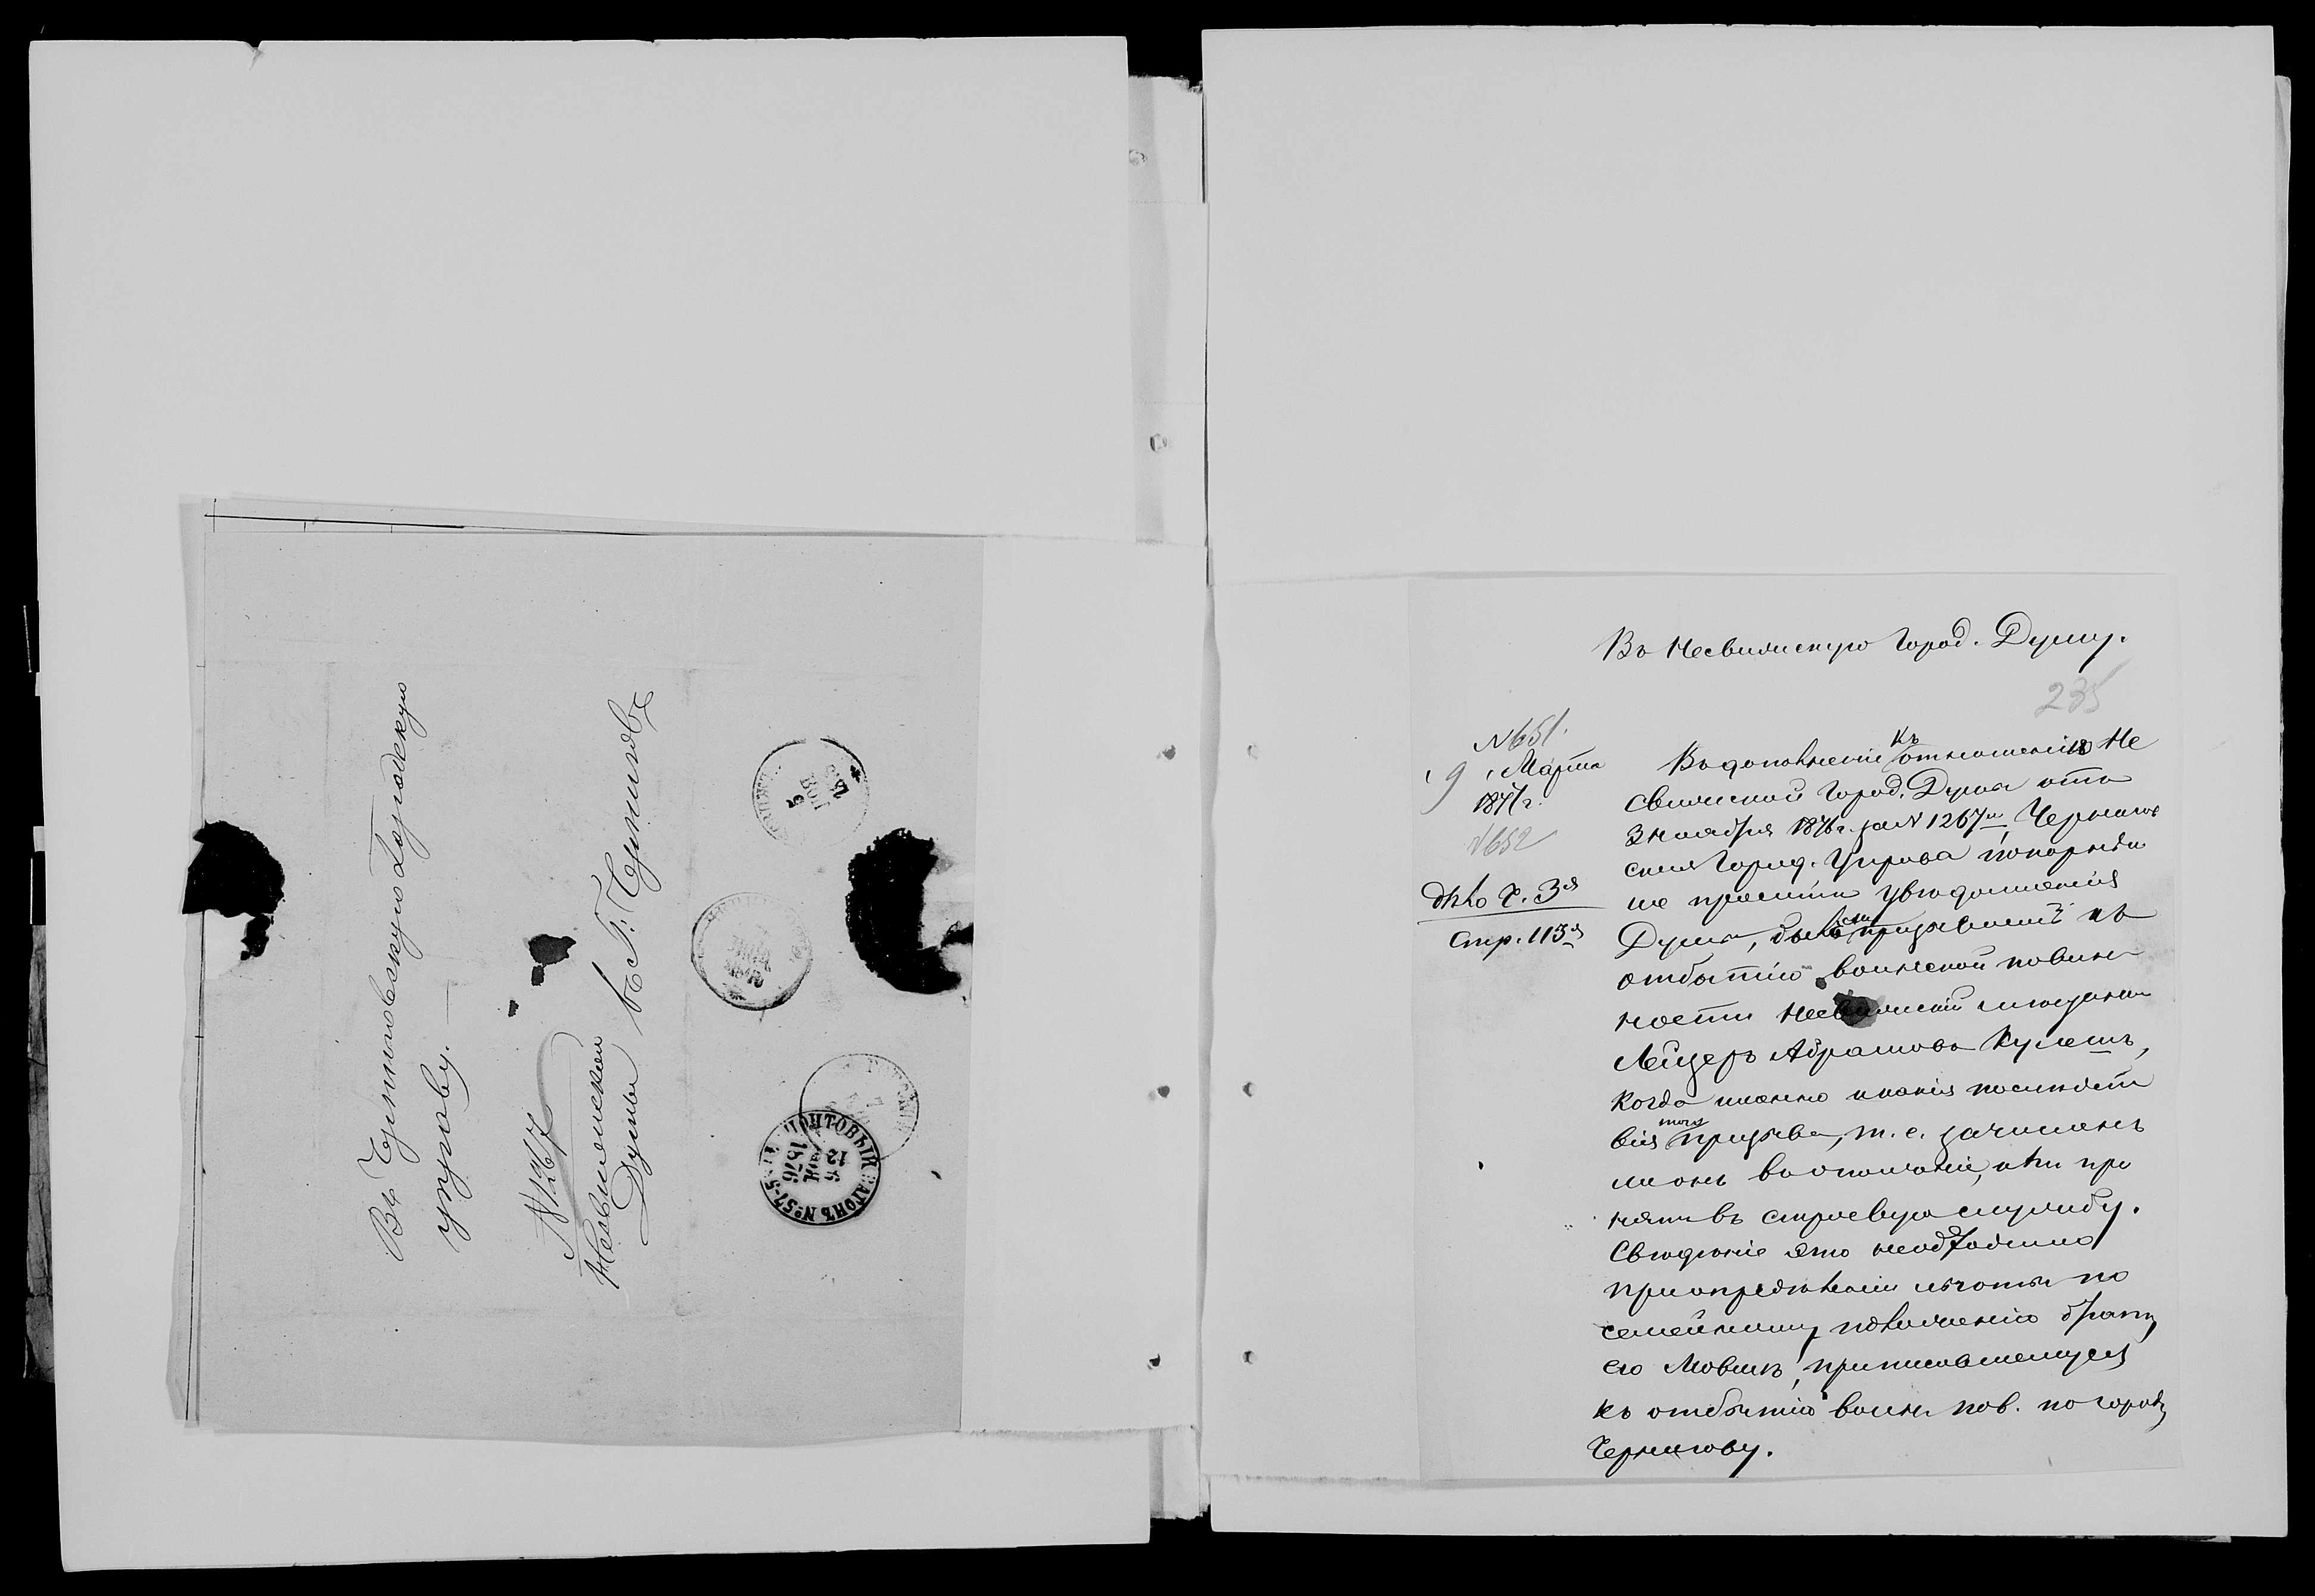 Въ Черниговскую Городскую
управу.
N 1267
Несвижской
Думы
въ Г. Черниговѣ
ПОЧТОВЫЙ ВАГОНЪ № 57-5
5
НОЯ
1876
Въ Несвижскую Город. Думу.
235
N 651.
9 Марта
1877 г.
N 652
дѣло Ч. 3я
стр. 113я
Въ дополненіи къ отношенію Не
свижской Город. Думы отъ
3 ноября 1876 г. за N 1267м, Чернигов
ская Город. Управа покорнѣй
ше проситъ увѣдомленія
Думы, былъ ли призываемъ къ
отбытію воинской повин
ности Несвижскій мѣщанинъ
Лейзеръ Абрамовъ Кулешъ,
когда именно и какія послѣдст
вія того призыва, т. е. зачисленъ
ли онъ въ ополченіе, или при
нятъ въ строевую службу.
Свѣденіе это необходимо
при опредѣленіи льготы по
семейному положенію брату
его Мовшѣ, приписавшемуся
къ отбытію воинс. пов. по городу
Чернигову.